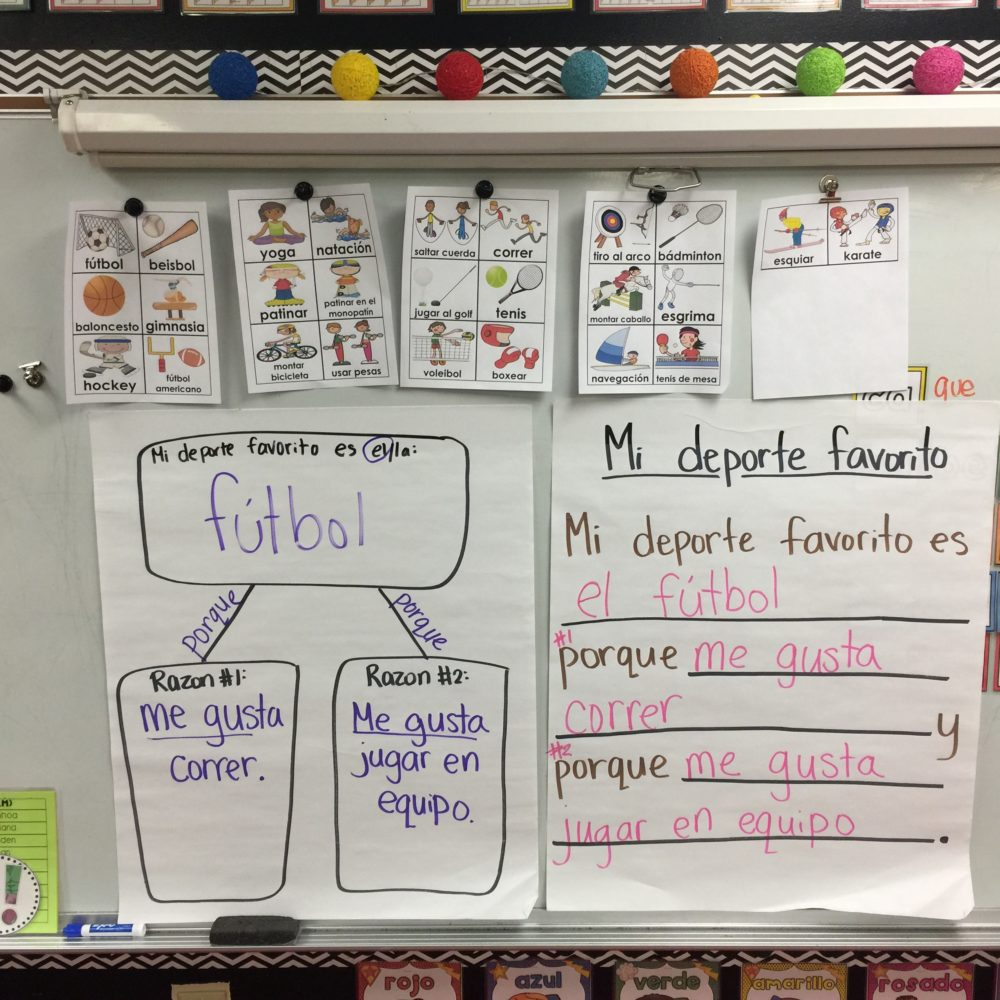 fútbol beisbol
baloncesto gimnasia
hockey fútbol americano
yoga natación
patinar patinar en el monopatín
montar bicicleta usar pesas
saltar cuerda correr
jugar al golf tenis
voleibol boxear
tiro al arco bádminton
montar caballo esgrima
navegación tenis de mesa
esquiar karate
que
Mi deporte favorito es el/la:
fútbol
porque porque
Razon #1:
me gusta
correr.
Razon #2:
Me gusta
jugar en
equipo.
Mi deporte favorito
Mi deporte favorito es
el fútbol
#1
porque me gusta
correr y
#2
porque me gusta
jugar en equipo.
rojo azul verde amarillo rosado